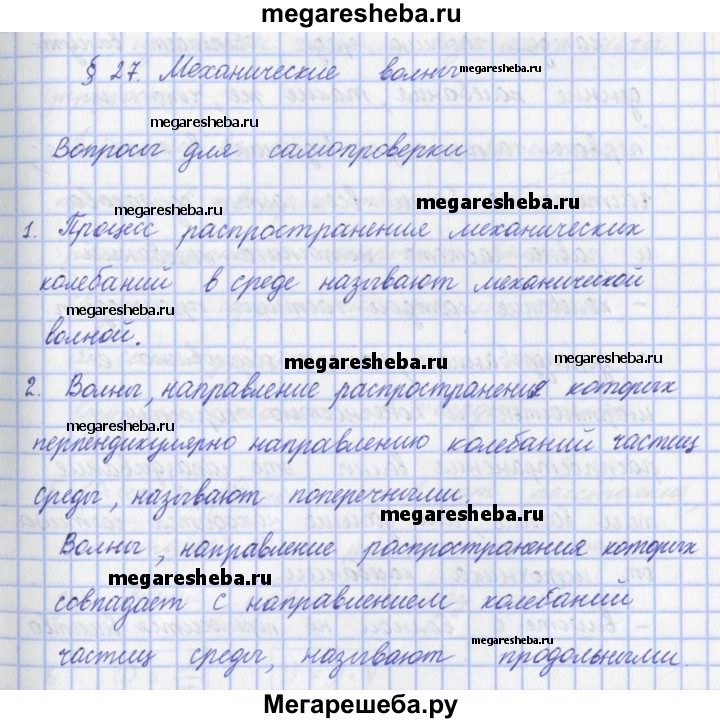 megaresheba.ru
§ 27. Механические волны megaresheba.ru
megaresheba.ru
Вопросы для самопроверки
megaresheba.ru megaresheba.ru
1. Процесс распространения механических
колебаний в среде называют механичикой
megaresheba.ru
волной.
megaresheba.ru megaresheba.ru
2. Волны, направление распространения которых
megaresheba.ru
перпендикулярно направлению колебаний частиц
среды, называют поперечными.
megaresheba.ru
Волны, направление распространения которых
megaresheba.ru
совпадает с направлением колебаний
megaresheba.ru
частиц среды, называют продольными.
Мегарешеба.ру